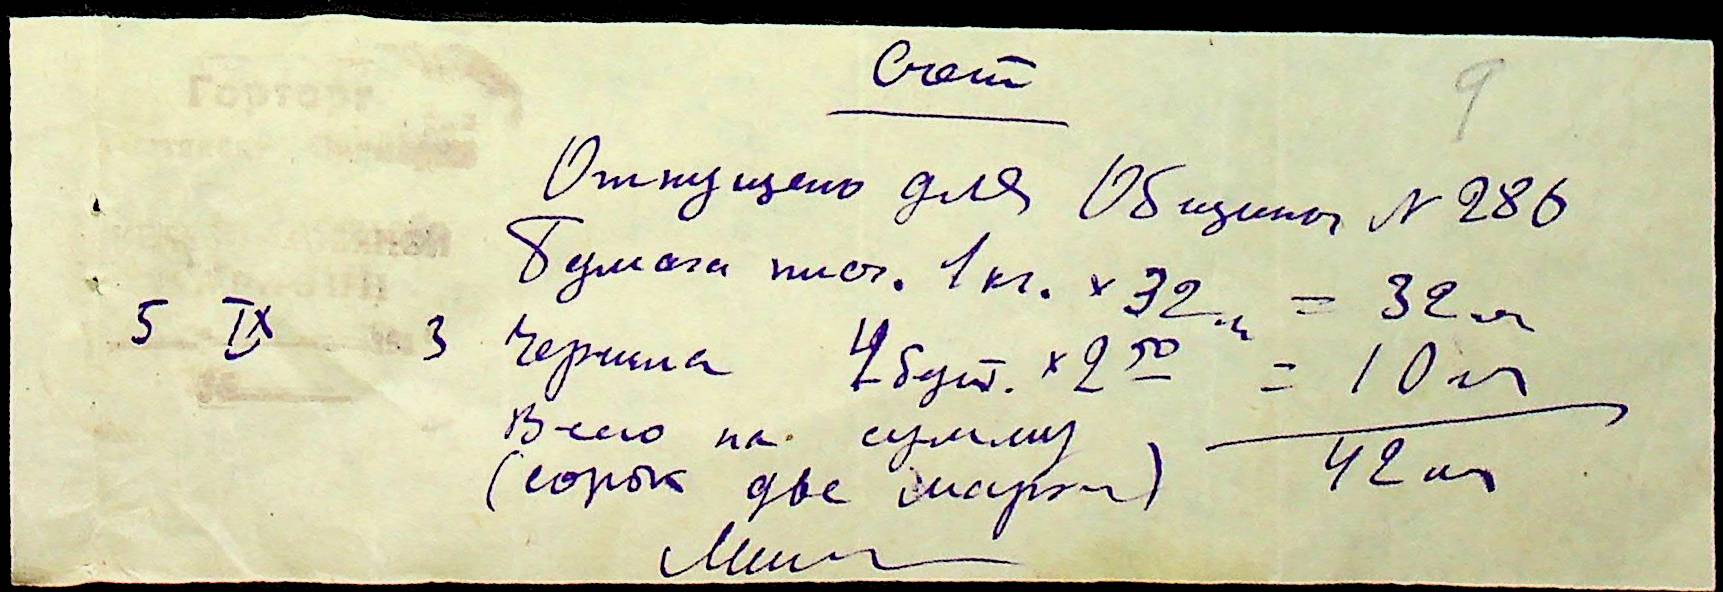 Счет
9
Отпущено для Общины № 286
Бумага писч. 1 кг. × 32 м = 32 м
5 IX 3 Чернила 4 бут. × 2 50 м = 10 м
Всего на сумму 42 м
(сорок две марки)
Горторг